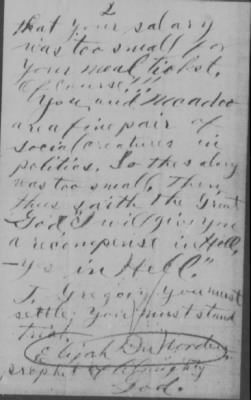 2
that your salary
was too small for
your meal ticket.
Of course!!!
You and Mcadoo
are a fine pair of
social creatures in
politics. So the salary
was too small, Then
thus saith the Great
God "I will give you
a recompense in Hell,
-yes in Hell."
T. Gregory you must
settle, you must stand
trial.
Elijah
prophet of Almighty
God.